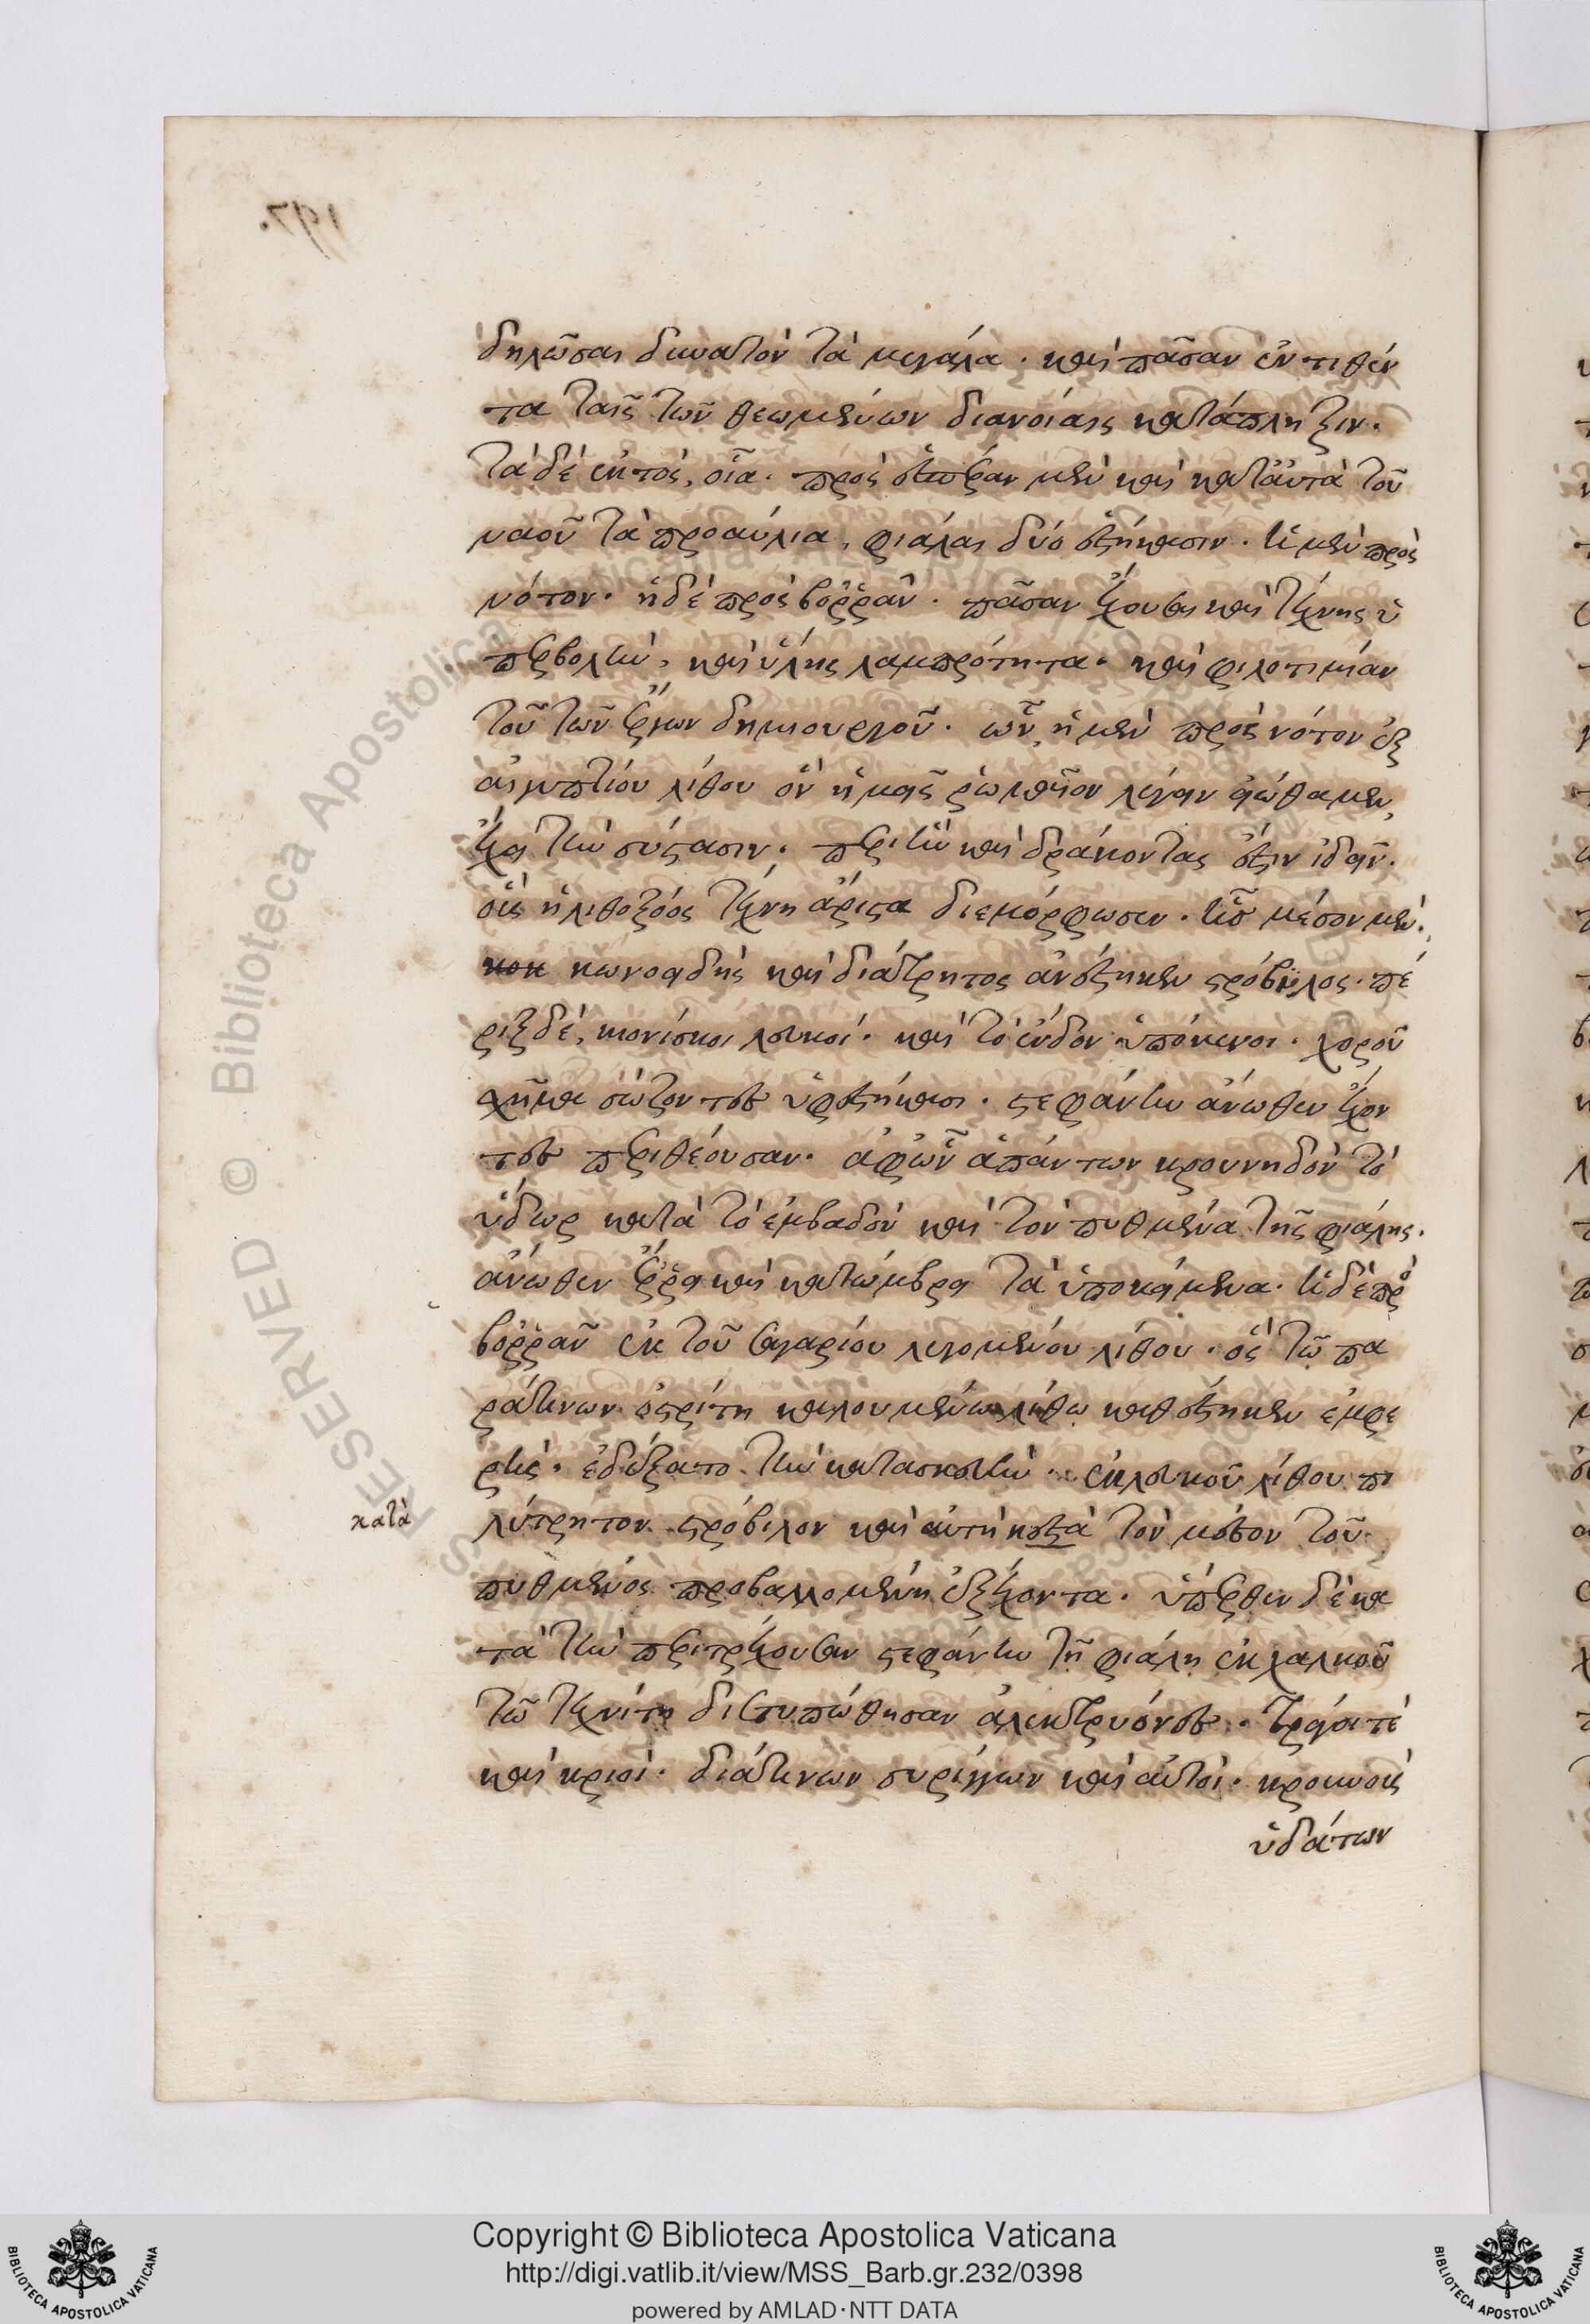 δηλῶσαι δυνατὸν τὰ μεγάλα. καὶ πᾶσαν ἐντιθέν
τα ταῖς τῶν θεωμένων διανοίαις κατάπληξιν.
τὰ δὲ ἐκτὸς, οἷα. πρὸς ἑσπέραν μὲν καὶ κατ᾽ αὐτὰ τοῦ
ναοῦ τὰ προαύλια, φιάλαι δύο ἑστήκασιν. ἡ μὲν πρὸς
νότον. ἡ δὲ πρὸς βοῤῥᾶν. πᾶσαν ἔχουσαι καὶ τέχνης ὑ
περβολὴν, καὶ ὕλης λαμπρότητα. καὶ φιλοτιμίαν
τοῦ τῶν ἔργων δημιουργοῦ. ὧν, ἡ μὲν πρὸς νότον ἐξ
αἰγυπτίου λίθου ὃν ἡμεῖς ῥωμαῖον λέγειν εἰώθαμεν,
ἔχει τὴν σύστασιν. περὶ ἣν καὶ δράκοντας ἔστιν ἰδεῖν.
οἷς ἡ λιθοξόος τέχνη ἄριστα διεμόρφωσεν. ἧς μέσον μὲν.
κωνοειδὴς καὶ διάτρητος ἀνέστηκεν στρόβιλος. πέ
ριξ δὲ, κιονίσκοι λευκοὶ. καὶ τὸ ἔνδον ὑπόκενοι. χοροῦ
σχῆμα σώζοντες ὑφεστήκασι. στεφάνην ἄνωθεν ἔχον
τες περιθέουσαν. ἀφ᾽ ὧν ἁπάντων κρουνηδὸν τὸ
ὕδωρ κατὰ τὸ ἐμβαδὸν καὶ τὸν πυθμένα τῆς φιάλης.
ἄνωθεν ἔῤῥει καὶ κατώμβρει τὰ ὑποκείμενα. ἡ δὲ πρὸς
βοῤῥᾶν ἐκ τοῦ σαγαρίου λεγομένου λίθου. ὃς τῷ πα
ρά τινων ὀστρίτῃ καλουμένῳ λίθῳ καθέστηκεν ἐμφε
ρής. ἐδέξατο τὴν κατασκευὴν. ἐκ λευκοῦ λίθου πο
λύτρητον στρόβιλον καὶ αὐτὴ κατὰ τὸν μέσον τοῦ
κατὰ
πυθμένος προβαλλομένη ἐξέχοντα. ὕπερθεν δὲ κα
τὰ τὴν περιτρέχουσαν στεφάνην τῇ φιάλῃ ἐκ χαλκοῦ
τῷ τεχνίτῃ διετυπώθησαν ἀλεκτρυόνες. τράγοι τὲ
καὶ κριοὶ. διά τινων συρίγγων καὶ αὐτοὶ. κρουνοὺς
ὑδάτων